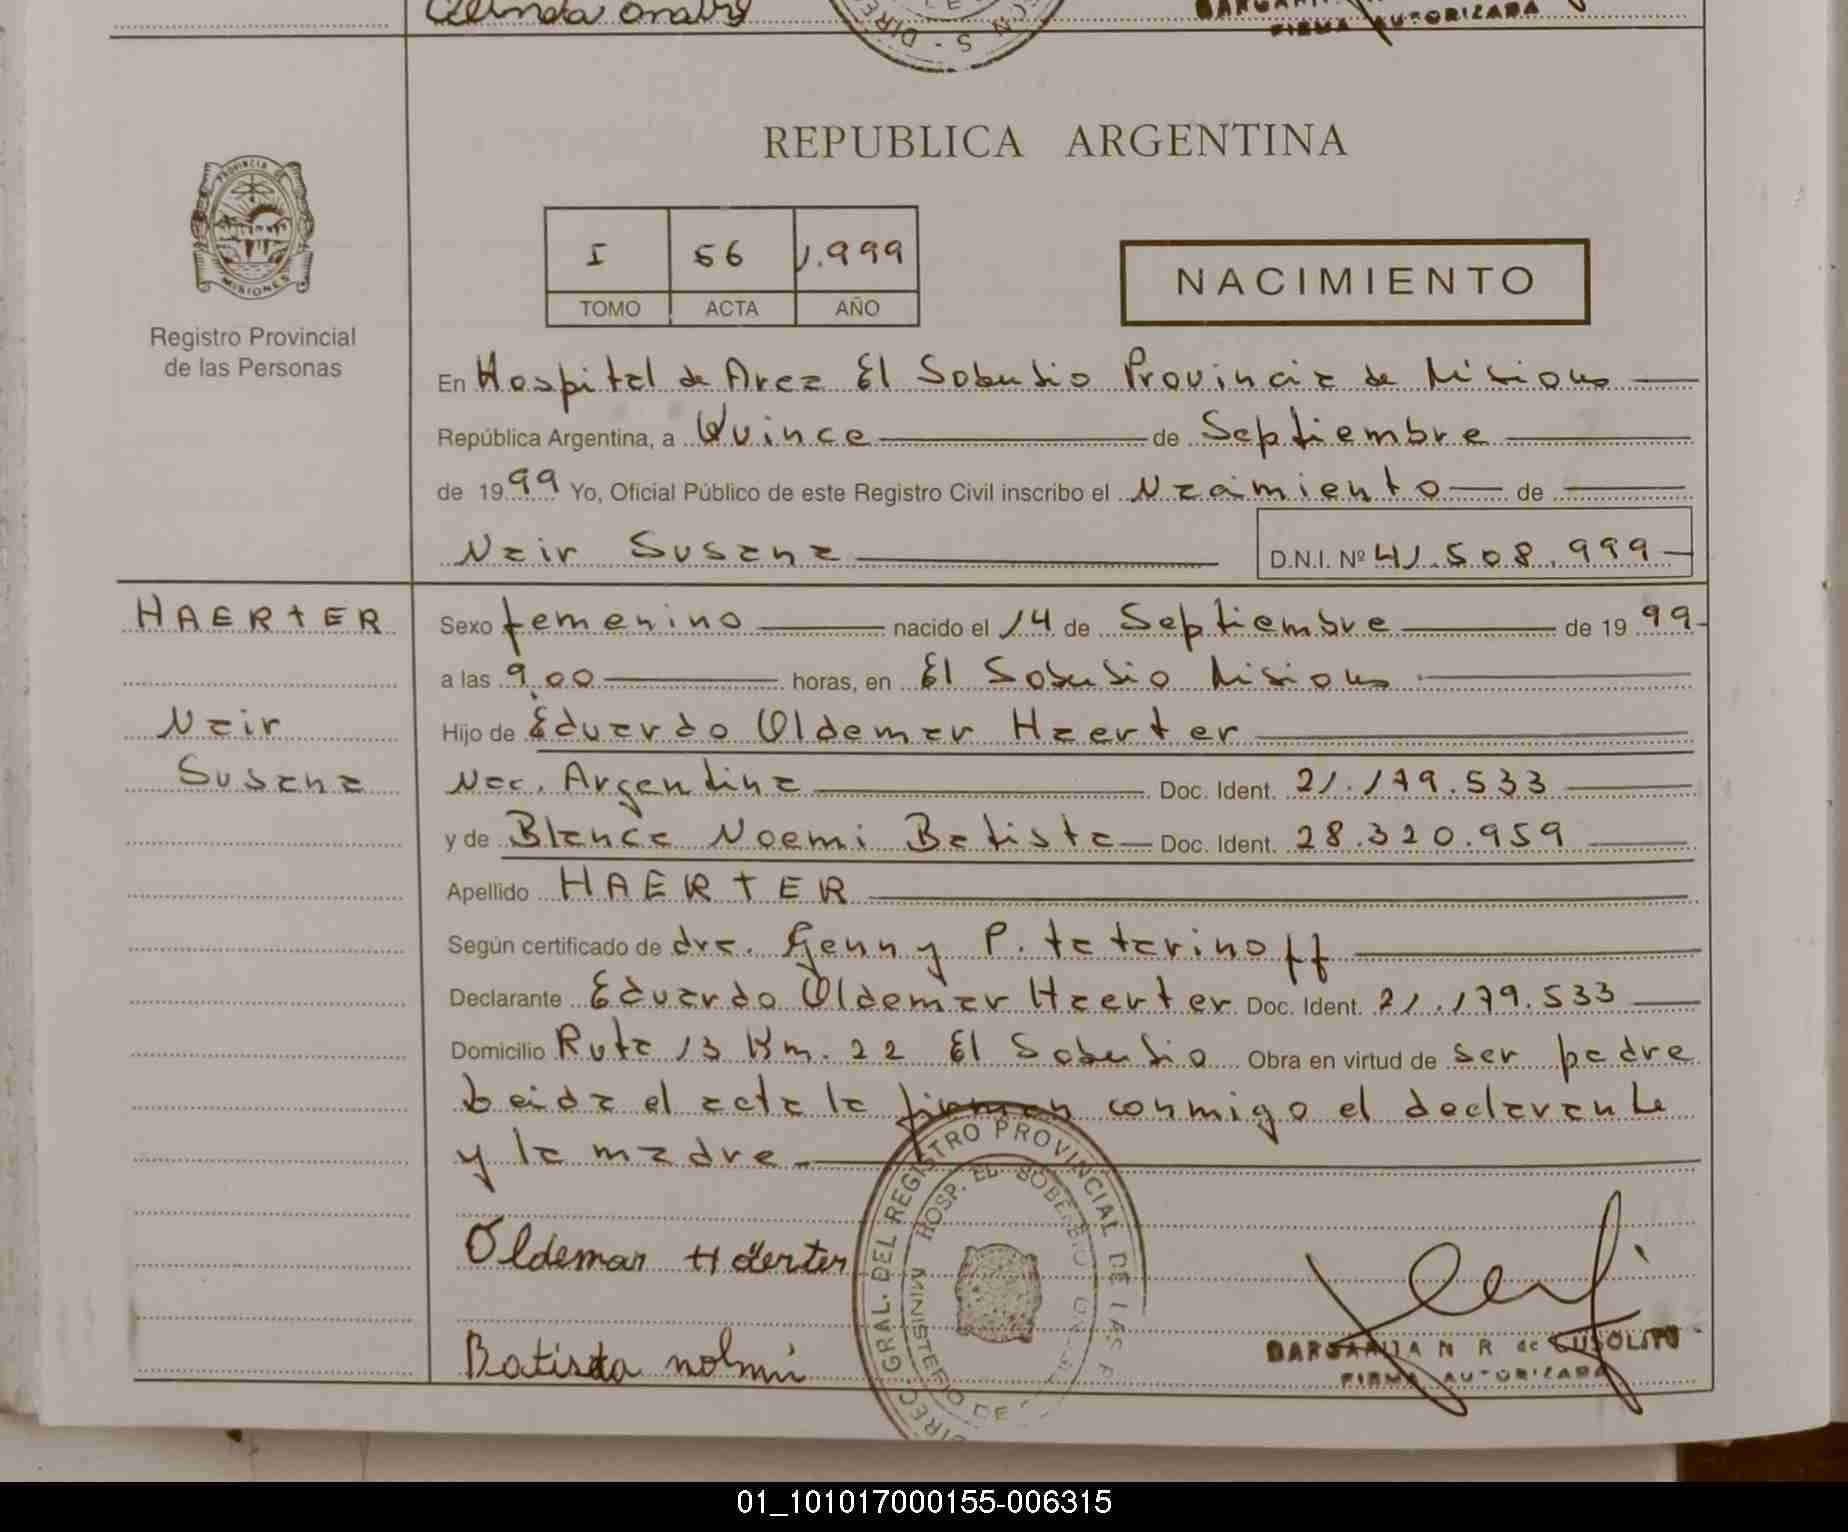 FIRMA AUTORIZADA
REPUBLICA ARGENTINA
PROVINCIA DE MISIONES
Registro Provincial
de las Personas
I 56 1.999
TOMO ACTA AÑO
NACIMIENTO
En Hospital de Area El Soberbio Provincia de Misiones
República Argentina, a Quince de Septiembre
de 1999 Yo, Oficial Público de este Registro Civil inscribo el Nacimiento de
Nair Susana D.N.I. Nº 41.508.999
HAERTER
Nair
Susana
Sexo femenino nacido el 14 de Septiembre de 1999
a las 9,00 horas, en El Soberbio Misiones
Hijo de Eduardo Oldemar Haerter
Nac. Argentina Doc. Ident. 21.179.533
y de Blanca Noemi Batista Doc. Ident. 28.320.959
Apellido HAERTER
Según certificado de dra. Genny P. tatarinoff
Declarante Eduardo Oldemar Haerter Doc. Ident. 21.179.533
Domicilio Ruta 13 Km. 22 El Soberbio Obra en virtud de ser padre
Leida el acta la firman conmigo el declarante
y la madre
Oldemar Haerter
Batista
DIREC. GRAL. DEL REGISTRO PROVINCIAL DE LAS P
HOSP. EL SOBERBIO
MINISTERIO DE
MARGARITA N R de CUSOLITO
FIRMA AUTORIZADA
01_101017000155-006315